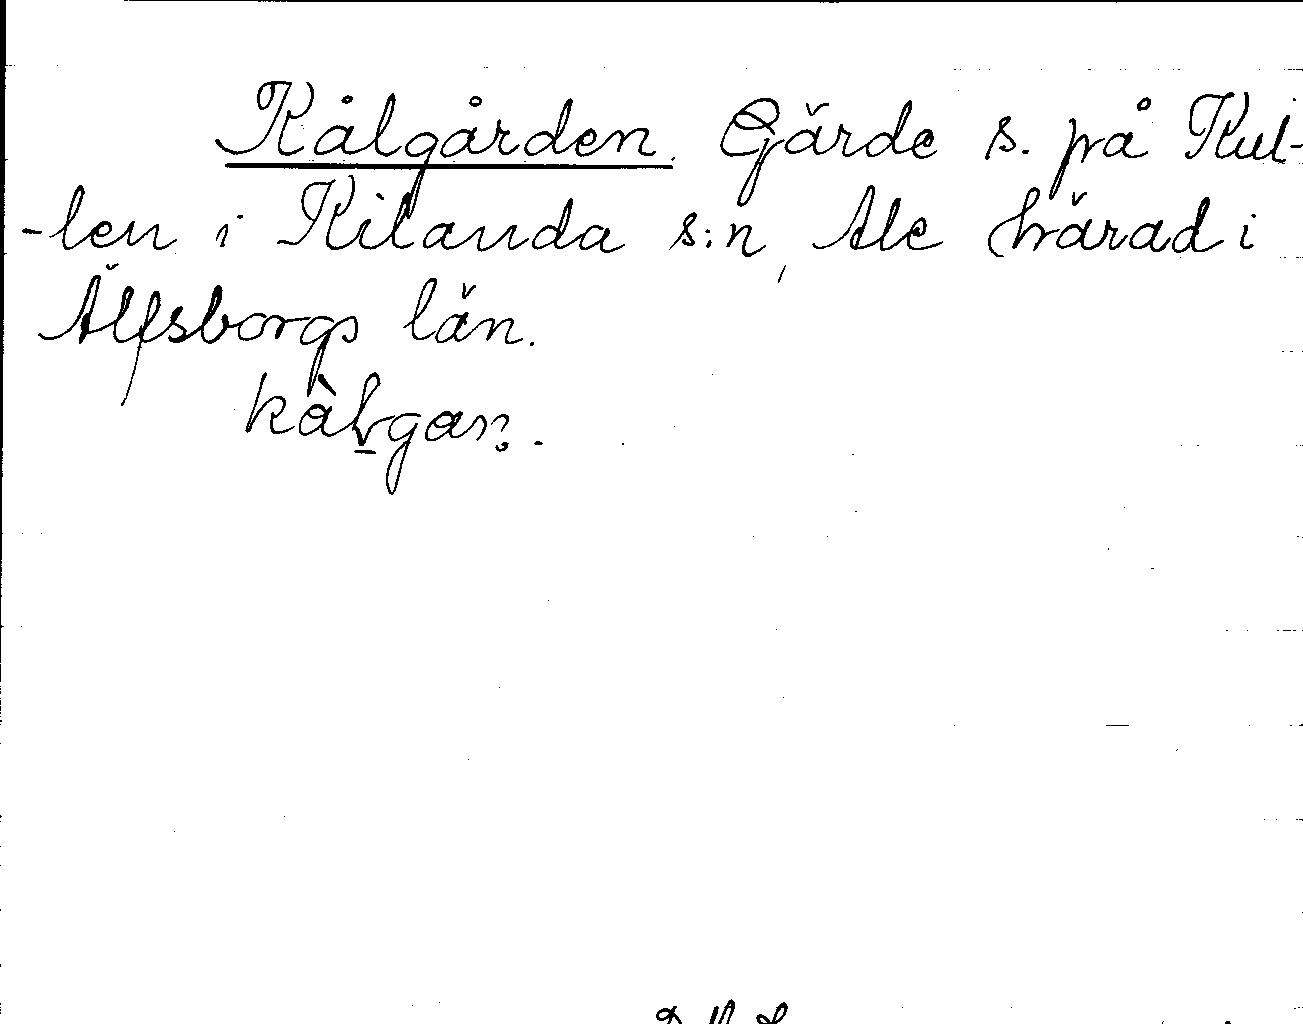 Kålgården. Gärde s. på Kul-
-len i Kilanda s:n, Ale härad i
Älfsborgs län.